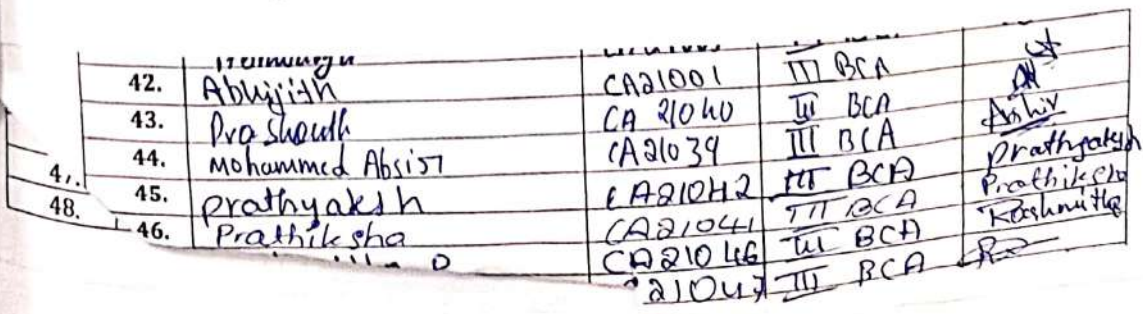 42. Abhijith CA21001 III BCA
43. Prashanth CA 21040 III BCA
44. Mohammed Absist CA21039 III BCA Ashiv
45. prathyaksh CA21042 III BCA prathyaksh
46. Prathiksha CA21041 III BCA Prathiksha
CA21046 III BCA Rashmitha
21047 III BCA
48.